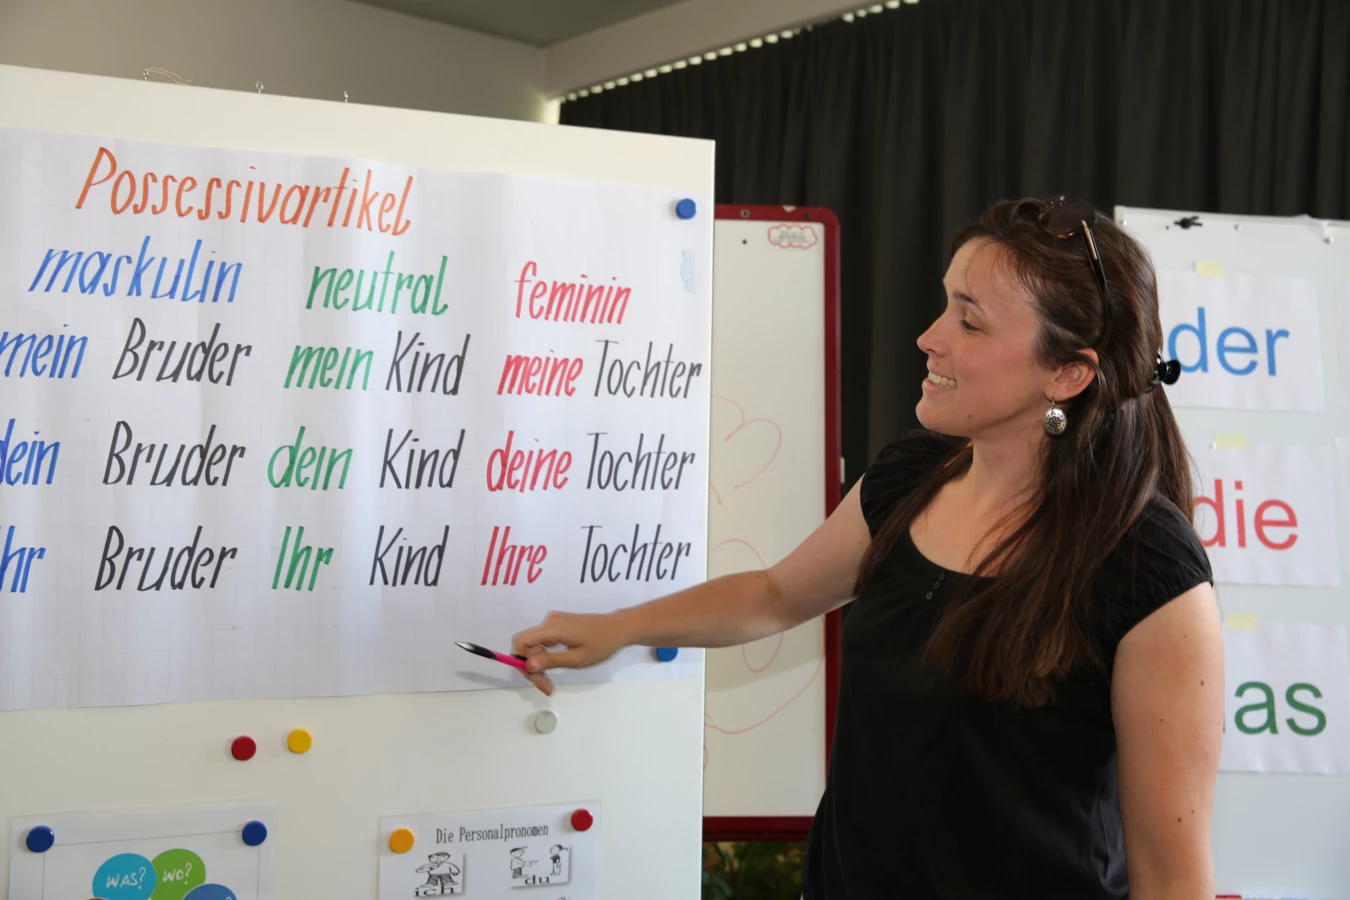 Possessivartikel
maskulin neutral feminin
mein Bruder mein Kind meine Tochter
dein Bruder dein Kind deine Tochter
Ihr Bruder Ihr Kind Ihre Tochter
WAS? WO?
Die Personalpronomen
ich du
der
die
as